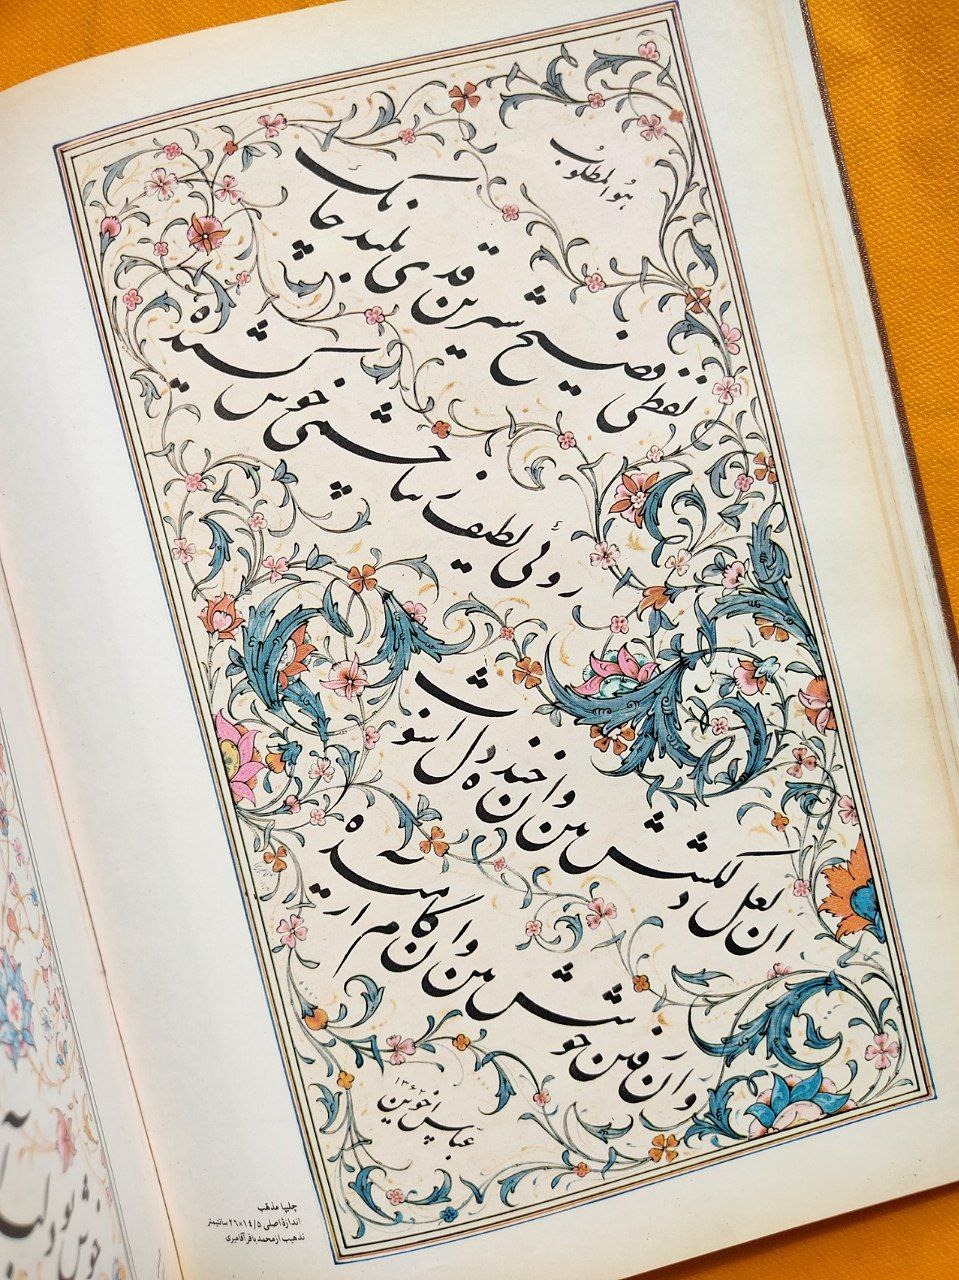 هو المطلوب
لفظی فصیح شیرین قدی بلند چابک
روئی لطیف زیبا چشمی خوش کشیده
ان لعل دلکشش بین وان خنده دل اشوب
وان رفتن خوشش بین وان گام ارمیده
عباس اخوین
چلیپا مذهب
اندازهٔ اصلی ۱۴/۵×۲۶ سانتیمتر
تذهیب از محمدباقر آقامیری